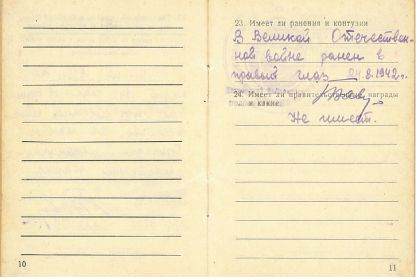 23. Имеет ли ранения и контузии
В Великой Отечествен-
ной войне ранен в
правый глаз 24.8.1942 г.
24. Имеет ли правительственные награды
и какие
Не имеет.
10
11